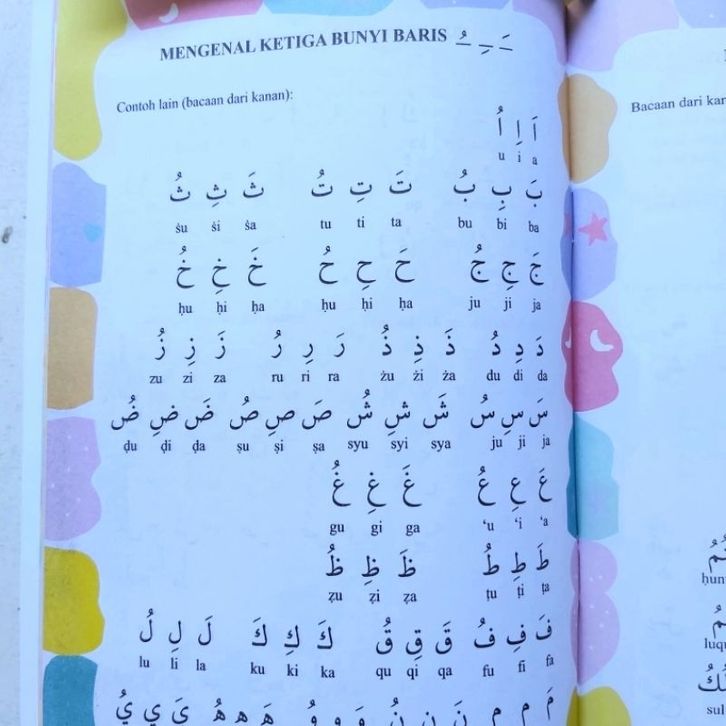 MENGENAL KETIGA BUNYI BARIS ـَ ـِ ـُ
Contoh lain (bacaan dari kanan):
اَ اِ اُ
u i a
بَ بِ بُ تَ تِ تُ ثَ ثِ ثُ
ṡu ṡi ṡa tu ti ta bu bi ba
جَ جِ جُ حَ حِ حُ خَ خِ خُ
ḥu ḥi ḥa ḥu ḥi ḥa ju ji ja
دَ دِ دُ ذَ ذِ ذُ رَ رِ رُ زَ زِ زُ
zu zi za ru ri ra żu żi ża du di da
سَ سِ سُ شَ شِ شُ صَ صِ صُ ضَ ضِ ضُ
ḍu ḍi ḍa ṣu ṣi ṣa syu syi sya ju ji ja
عَ عِ عُ غَ غِ غُ
gu gi ga ‘u ‘i ‘a
طَ طِ طُ ظَ ظِ ظُ
ẓu ẓi ẓa ṭu ṭi ṭa
فَ فِ فُ قَ قِ قُ كَ كِ كَ لَ لِ لُ
lu li la ku ki ka qu qi qa fu fi fa
Bacaan dari